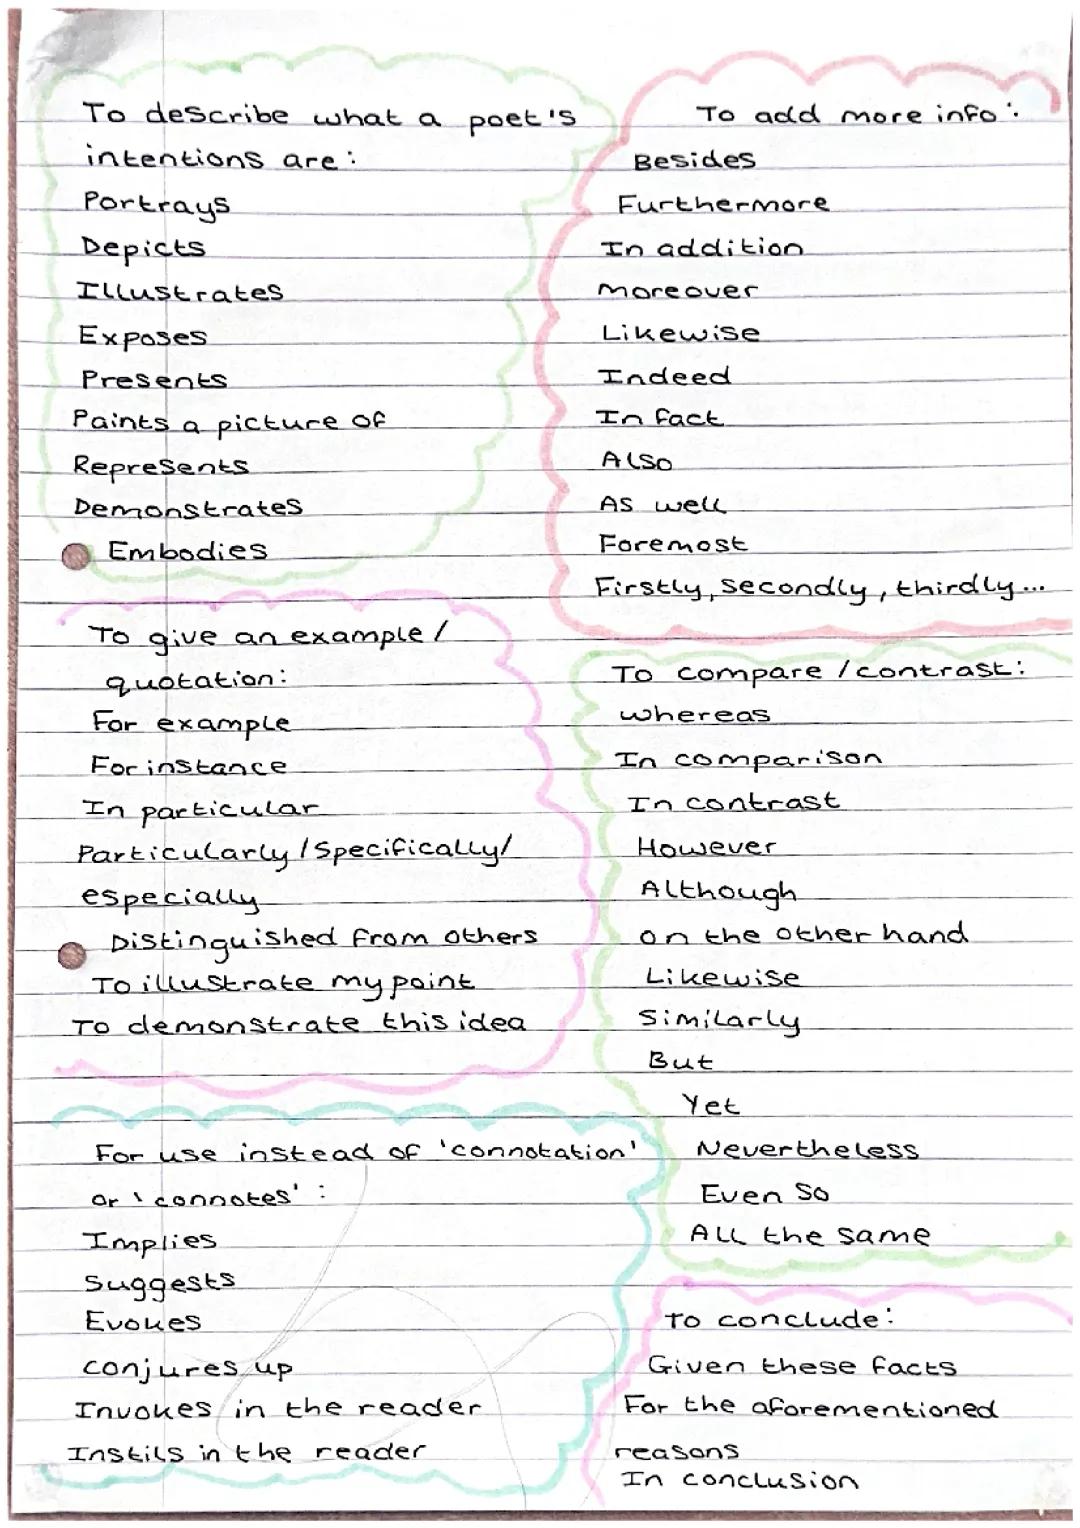 To describe what a poet's
intentions are:
Portrays
Depicts
Illustrates
Exposes
Presents
Paints a picture of
Represents
Demonstrates
Embodies
To give an example /
quotation:
For example
For instance
In particular
Particularly / Specifically/
especially
Distinguished from others
To illustrate my point
To demonstrate this idea
For use instead of 'connotation'
or 'connotes' :
Implies
Suggests
Evokes
conjures up
Invokes in the reader
Instils in the reader
To add more info:
Besides
Furthermore
In addition
Moreover
Likewise
Indeed
In fact
Also
As well
Foremost
Firstly, Secondly, thirdly...
To compare / contrast:
whereas
In comparison
In contrast
However
Although
on the other hand
Likewise
Similarly
But
Yet
Nevertheless
Even so
All the same
To conclude:
Given these facts
For the aforementioned
reasons
In conclusion